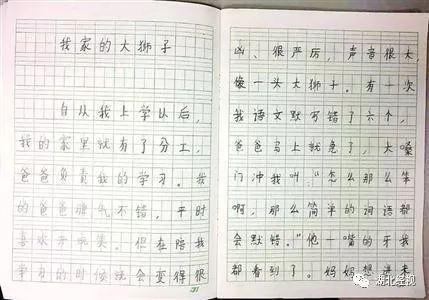 我家的大狮子
自从我上学以后，
我的家里就有了分工，
爸爸负责我的学习。我
的爸爸脾气不错，平时
喜欢开玩笑。但在陪我
学习的时候就会变得很
21
凶、很严厉，声音很大
像一头大狮子。有一次
我语文默写错了六个，
爸爸马上就急了，大嗓
门冲我叫："怎么那么笨
啊，那么简单的词语都
会默错。"他一嘴的牙我
都看到了。妈妈想进来
湖北经视